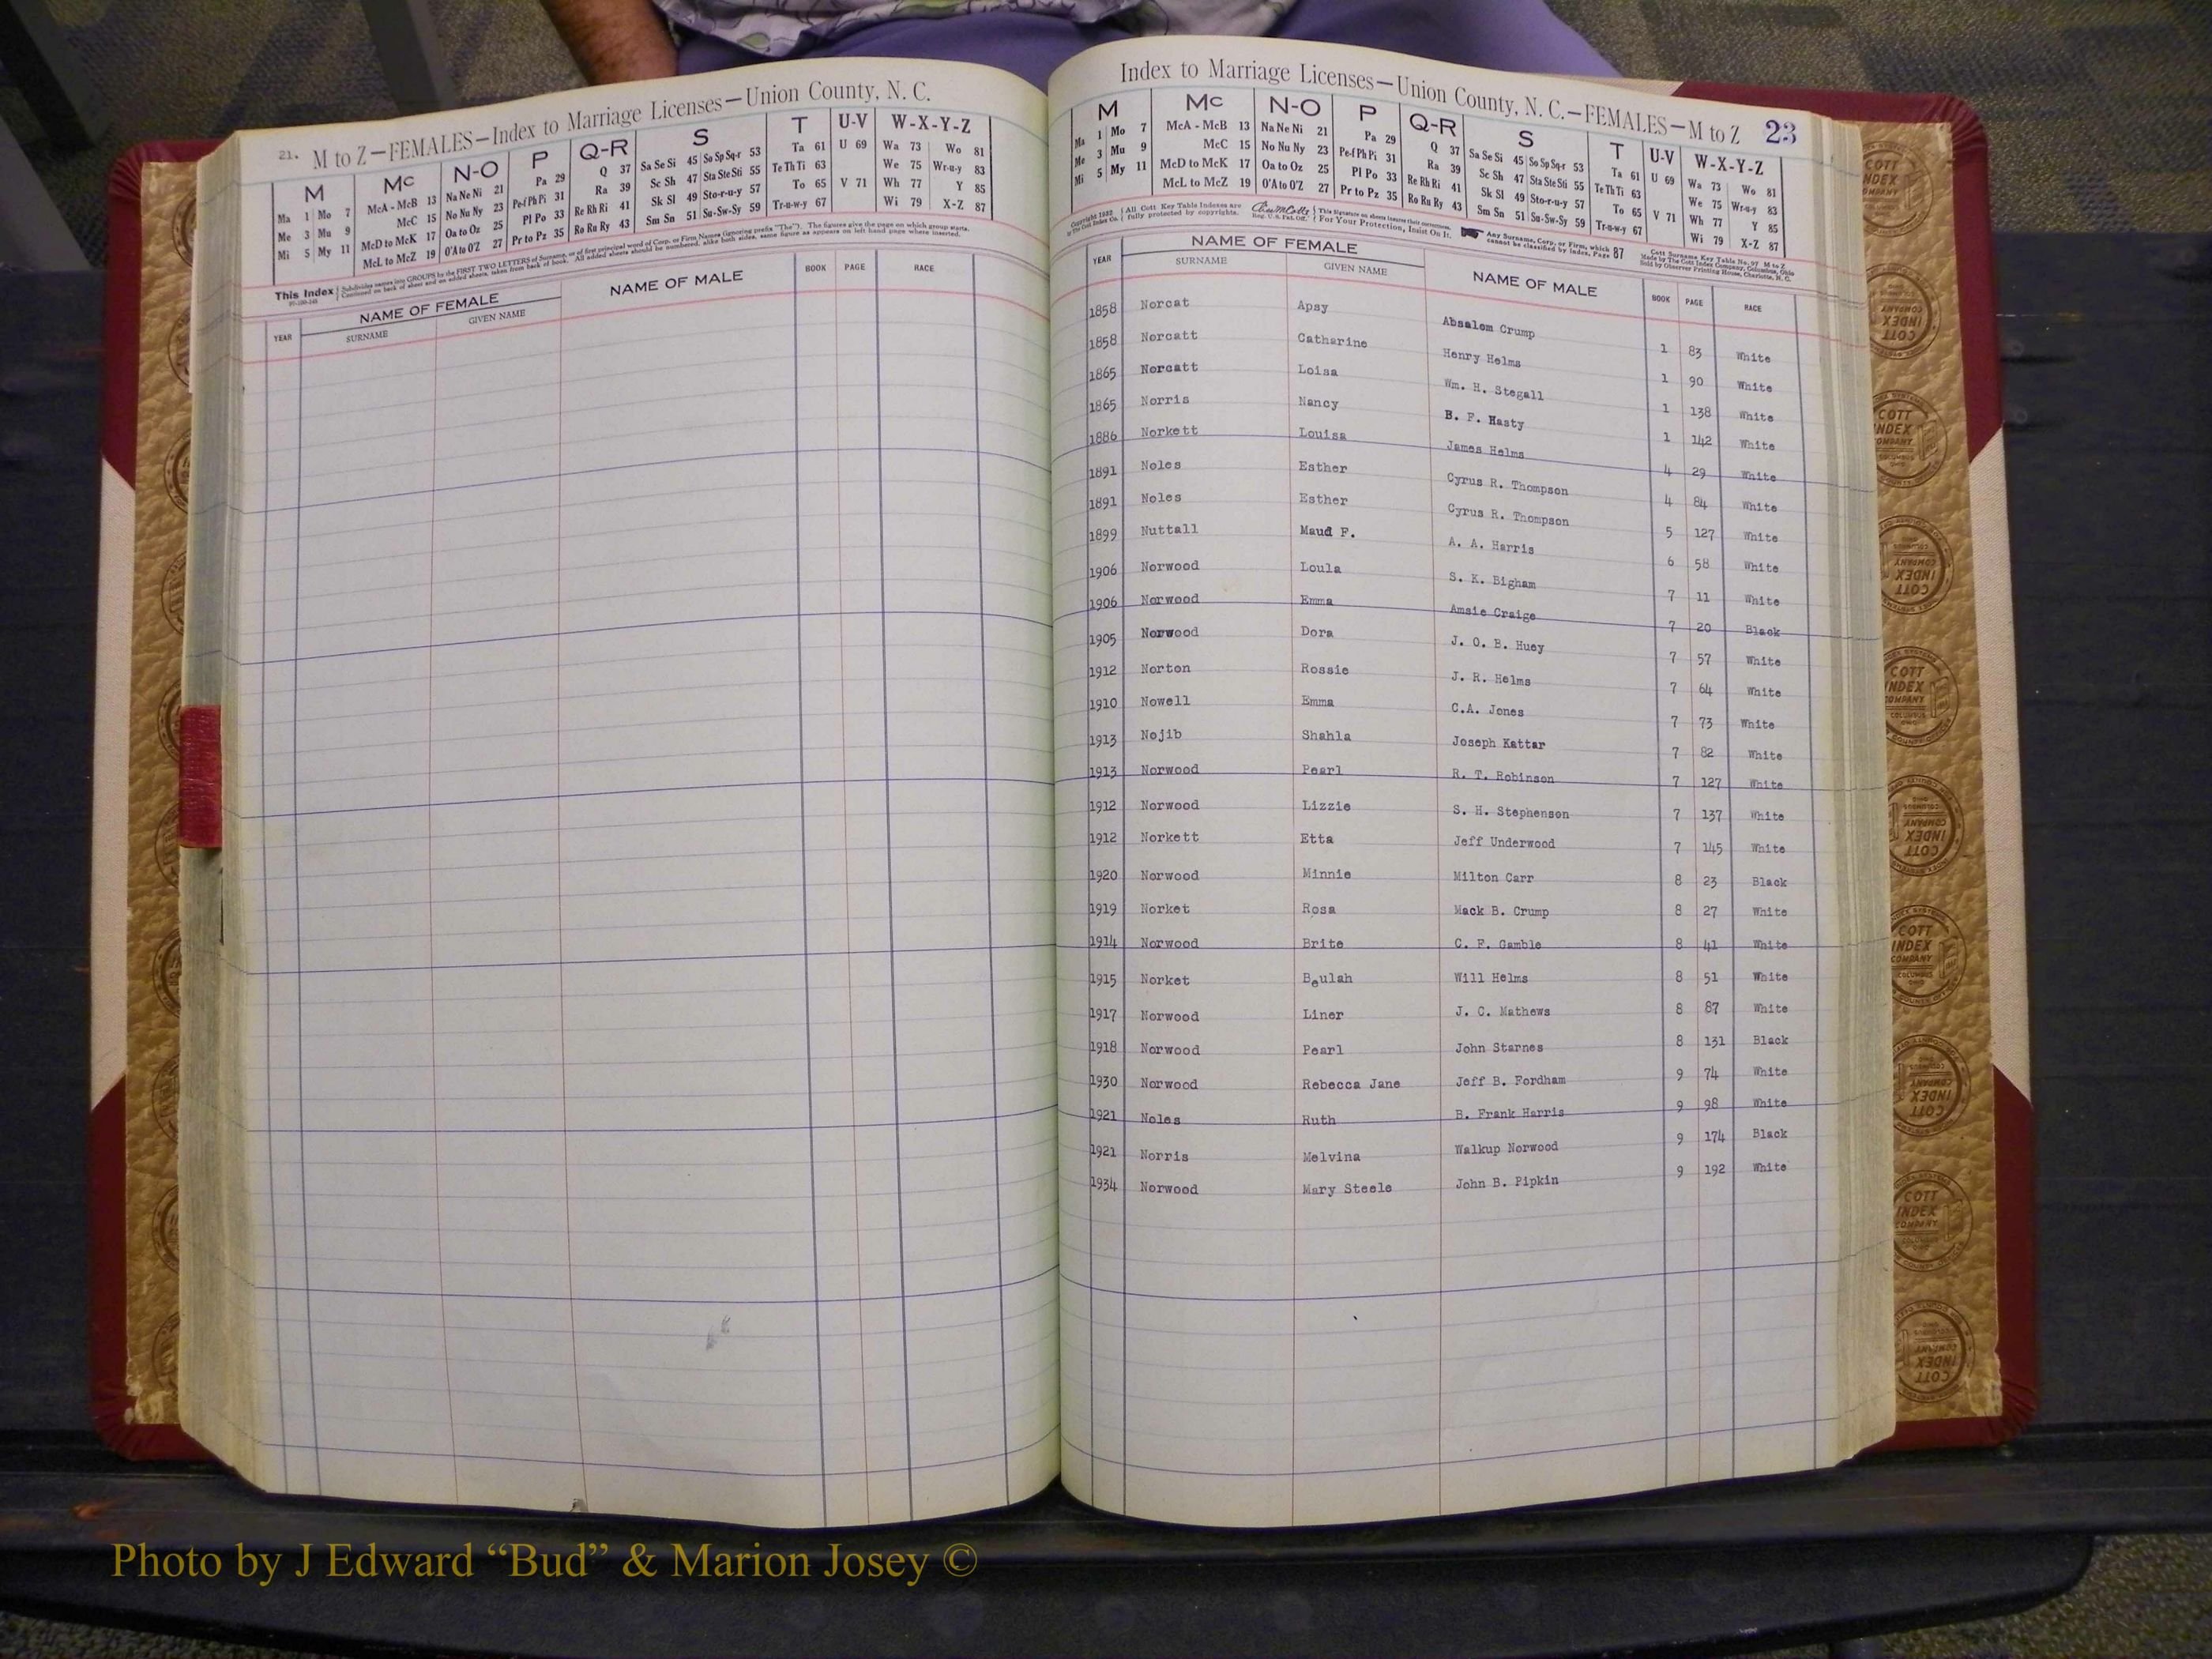 21. M to Z—FEMALES—Index to Marriage Licenses—Union County, N. C.
M Mc N-O P Q-R S T U-V W-X-Y-Z
Ma 1 Mo 7 McA - McB 13 Na Ne Ni 21 Pa 29 Q 37 Sa Se Si 45 So Sp Sq-r 53 Ta 61 U 69 Wa 73 Wo 81
Me 3 Mu 9 McC 15 No Nu Ny 23 Pe-f Ph Pi 31 Ra 39 Sc Sh 47 Sta Ste Sti 55 Te Th Ti 63 We 75 Wr-u-y 83
Mi 5 My 11 McD to McK 17 Oa to Oz 25 Pl Po 33 Re Rh Ri 41 Sk Sl 49 Sto-r-u-y 57 To 65 V 71 Wh 77 Y 85
McL to McZ 19 O'A to O'Z 27 Pr to Pz 35 Ro Ru Ry 43 Sm Sn 51 Su-Sw-Sy 59 Tr-u-w-y 67 Wi 79 X-Z 87
This Index Subdivides names into GROUPS by the FIRST TWO LETTERS of Surname, or of first principal word of Corp. or Firm Names (ignoring prefix "The"). The figures give the page on which group starts.
Continued on back of sheet and on added sheets, taken from back of book. All added sheets should be numbered, alike both sides, same figure as appears on left hand page where inserted.
YEAR NAME OF FEMALE NAME OF MALE BOOK PAGE RACE
SURNAME GIVEN NAME
Index to Marriage Licenses—Union County, N. C.—FEMALES—M to Z 23
M Mc N-O P Q-R S T U-V W-X-Y-Z
Ma 1 Mo 7 McA - McB 13 Na Ne Ni 21 Pa 29 Q 37 Sa Se Si 45 So Sp Sq-r 53 Ta 61 U 69 Wa 73 Wo 81
Me 3 Mu 9 McC 15 No Nu Ny 23 Pe-f Ph Pi 31 Ra 39 Sc Sh 47 Sta Ste Sti 55 Te Th Ti 63 We 75 Wr-u-y 83
Mi 5 My 11 McD to McK 17 Oa to Oz 25 Pl Po 33 Re Rh Ri 41 Sk Sl 49 Sto-r-u-y 57 To 65 V 71 Wh 77 Y 85
McL to McZ 19 O'A to O'Z 27 Pr to Pz 35 Ro Ru Ry 43 Sm Sn 51 Su-Sw-Sy 59 Tr-u-w-y 67 Wi 79 X-Z 87
All Cott Key Table Indexes are fully protected by copyrights. For Your Protection, Insist On It. Any Surname, Corp. or Firm, which cannot be classified by Index, Page 87
Cott Surname Key Table No. 97 M to Z
Made by The Cott Index Company, Columbus, Ohio
Sold by Observer Printing House, Charlotte, N. C.
YEAR NAME OF FEMALE NAME OF MALE BOOK PAGE RACE
SURNAME GIVEN NAME
1858 Norcat Apsy Absalom Crump 1 83 White
1858 Norcatt Catharine Henry Helms 1 90 White
1865 Norcatt Loisa Wm. H. Stegall 1 138 White
1865 Norris Nancy B. F. Hasty 1 142 White
1886 Norkett Louisa James Helms 4 29 White
1891 Noles Esther Cyrus R. Thompson 4 84 White
1891 Noles Esther Cyrus R. Thompson 5 127 White
1899 Nuttall Maud F. A. A. Harris 6 58 White
1906 Norwood Loula S. K. Bigham 7 11 White
1906 Norwood Emma Amsie Craige 7 20 Black
1905 Norwood Dora J. O. B. Huey 7 57 White
1912 Norton Rossie J. R. Helms 7 64 White
1910 Nowell Emma C.A. Jones 7 73 White
1913 Nojib Shahla Joseph Kattar 7 82 White
1913 Norwood Pearl R. T. Robinson 7 127 White
1912 Norwood Lizzie S. H. Stephenson 7 137 White
1912 Norkett Etta Jeff Underwood 7 145 White
1920 Norwood Minnie Milton Carr 8 23 Black
1919 Norket Rosa Mack B. Crump 8 27 White
1914 Norwood Brite C. F. Gamble 8 41 White
1915 Norket Beulah Will Helms 8 51 White
1917 Norwood Liner J. C. Mathews 8 87 White
1918 Norwood Pearl John Starnes 8 131 Black
1930 Norwood Rebecca Jane Jeff B. Fordham 9 74 White
1921 Noles Ruth B. Frank Harris 9 98 White
1921 Norris Melvina Walkup Norwood 9 174 Black
1934 Norwood Mary Steele John B. Pipkin 9 192 White
COTT INDEX COMPANY COLUMBUS OHIO
Photo by J Edward “Bud” & Marion Josey ©